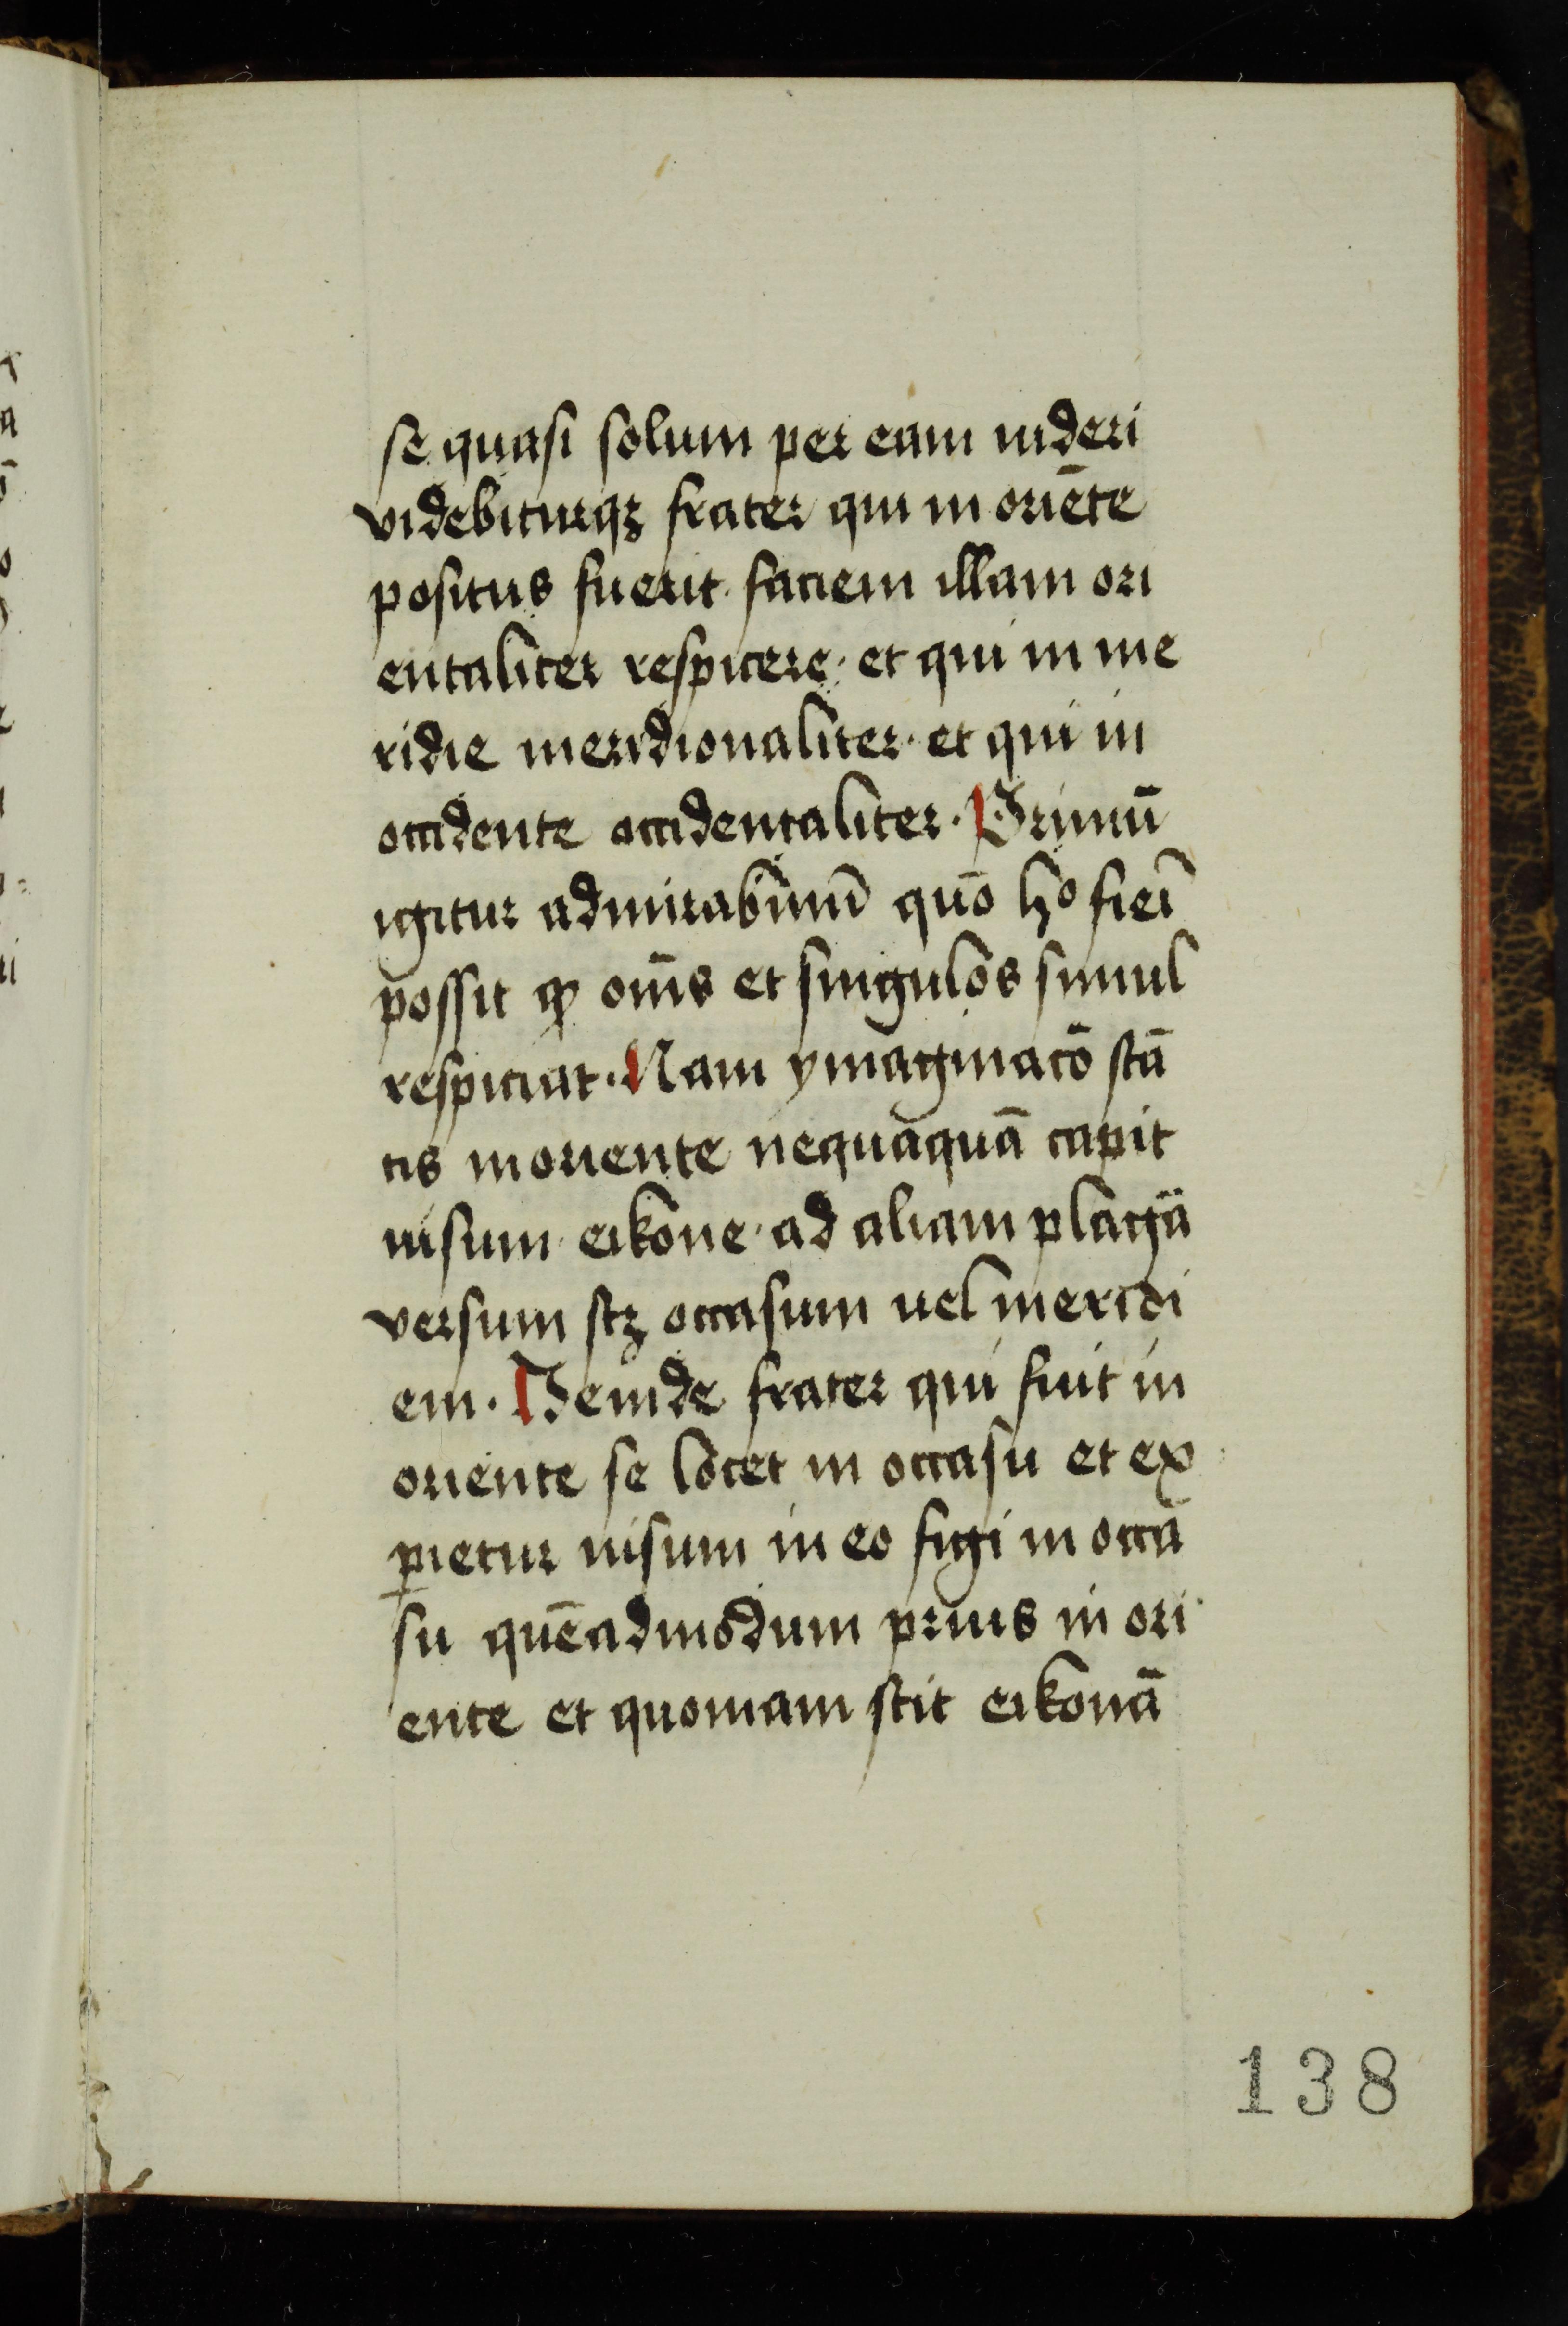 se quasi solum per eam uideri
videbiturqꝫ frater qui in oriēte
positus fuerit faciem illam ori
entaliter respicere· et qui in me
ridie meridionaliter· et qui in
occidente occidentaliter· Primū
igitur admirabimī quō hͦ fieī
possit ꝙ om̄s et singulos simul
respiciat· Nam ymaginatō stā
tis in oriente nequaquā capit
uisum eikone· ad aliam plagā
versum scꝫ occasum uel meridi
em· Deinde frater qui fuit in
oriente se locet in occasu et ex
ꝑietur uisum in eo figi in occa
su quēadmodum prius in ori
ente et quoniam scit eikonā
138